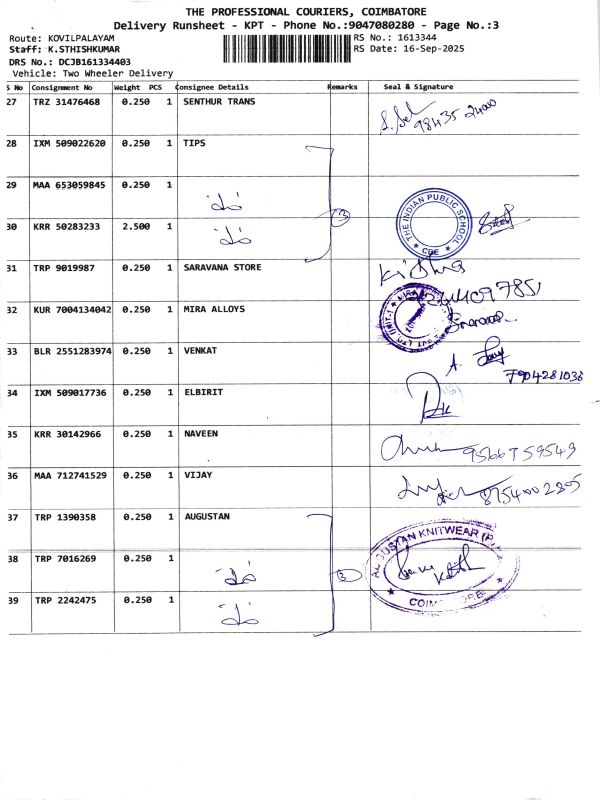 THE PROFESSIONAL COURIERS, COIMBATORE
Delivery Runsheet - KPT - Phone No.:9047080280 - Page No.:3
Route: KOVILPALAYAM RS No.: 1613344
Staff: K.STHISHKUMAR RS Date: 16-Sep-2025
DRS No.: DCJB161334403
Vehicle: Two Wheeler Delivery
S No Consignment No Weight PCS Consignee Details Remarks Seal & Signature
27 TRZ 31476468 0.250 1 SENTHUR TRANS
98435 2400
28 IXM 509022620 0.250 1 TIPS
29 MAA 653059845 0.250 1
30 KRR 50283233 2.500 1 3 THE INDIAN PUBLIC SCHOOL CBE
31 TRP 9019987 0.250 1 SARAVANA STORE
32 KUR 7004134042 0.250 1 MIRA ALLOYS
33 BLR 2551283974 0.250 1 VENKAT
7904281036
34 IXM 509017736 0.250 1 ELBIRIT
35 KRR 30142966 0.250 1 NAVEEN 9566759549
36 MAA 712741529 0.250 1 VIJAY 8754002805
37 TRP 1390358 0.250 1 AUGUSTAN
38 TRP 7016269 0.250 1 3
39 TRP 2242475 0.250 1